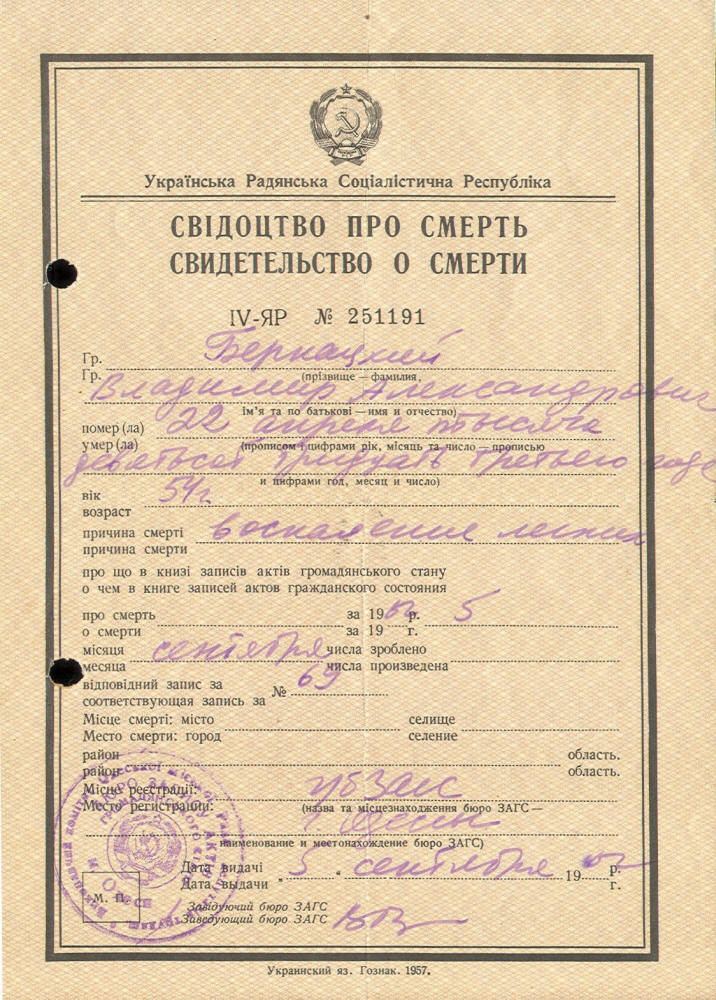 Українська Радянська Соціалістична Республіка
СВІДОЦТВО ПРО СМЕРТЬ
СВИДЕТЕЛЬСТВО О СМЕРТИ
IV-ЯР № 251191
Гр. Бернацкий
Гр. (прізвище — фамилия,
Владимир Александрович
ім'я та по батькові — имя и отчество)
помер (ла) 22 апреля тысяча
умер (ла) (прописом і цифрами рік, місяць та число — прописью
девятьсот тридцать третьего года
и цифрами год, месяц и число)
вік 54 г.
возраст
причина смерті воспаление легких
причина смерти
про що в книзі записів актів громадянського стану
о чем в книге записей актов гражданского состояния
про смерть за 19 р. 5
о смерти за 19 г.
місяця сентября числа зроблено
месяца числа произведена
відповідний запис за № 69
соответствующая запись за
Місце смерті: місто селище
Место смерти: город селение
район область.
район область.
Місце реєстрації:
Место регистрации: (назва та місцезнаходження бюро ЗАГС —
наименование и местонахождение бюро ЗАГС)
Дата видачі „ 5 “ сентября 19 р.
Дата выдачи г.
М. П.
Завідуючий бюро ЗАГС
Заведующий бюро ЗАГС
Украинский яз. Гознак. 1957.